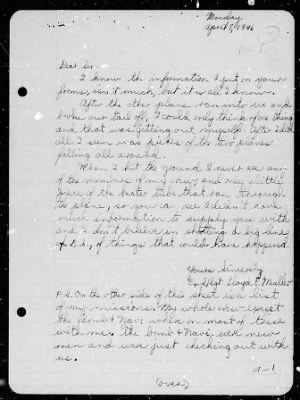 Monday
April 1, 1946
Dear Sir:
I know th information I put on your
forms, isn't much, but it is all I know.
After the other plane ran into us and
broke our tail off, I could only think of one thing
and that was getting out myself. After I did
all I seen was pieces of the two planes
falling all around.
When I hit the ground I never see any
of the members of my crew and only a little
piece of the heater tube that ran through
the plane, so you can see I didn't have
much information to supply you with
and I don't believe in shooting a big line
of of things that could have happened.
Yours Sincerely
Ex S/Sgt Lloyd Muller
P.S. On the other side of this sheet is a list
of my missions. My whole crew except
the Bomb & Nav. where on most of these
with me. The Bomb & Nav. were new
men and were just checking out with
us.
(over)